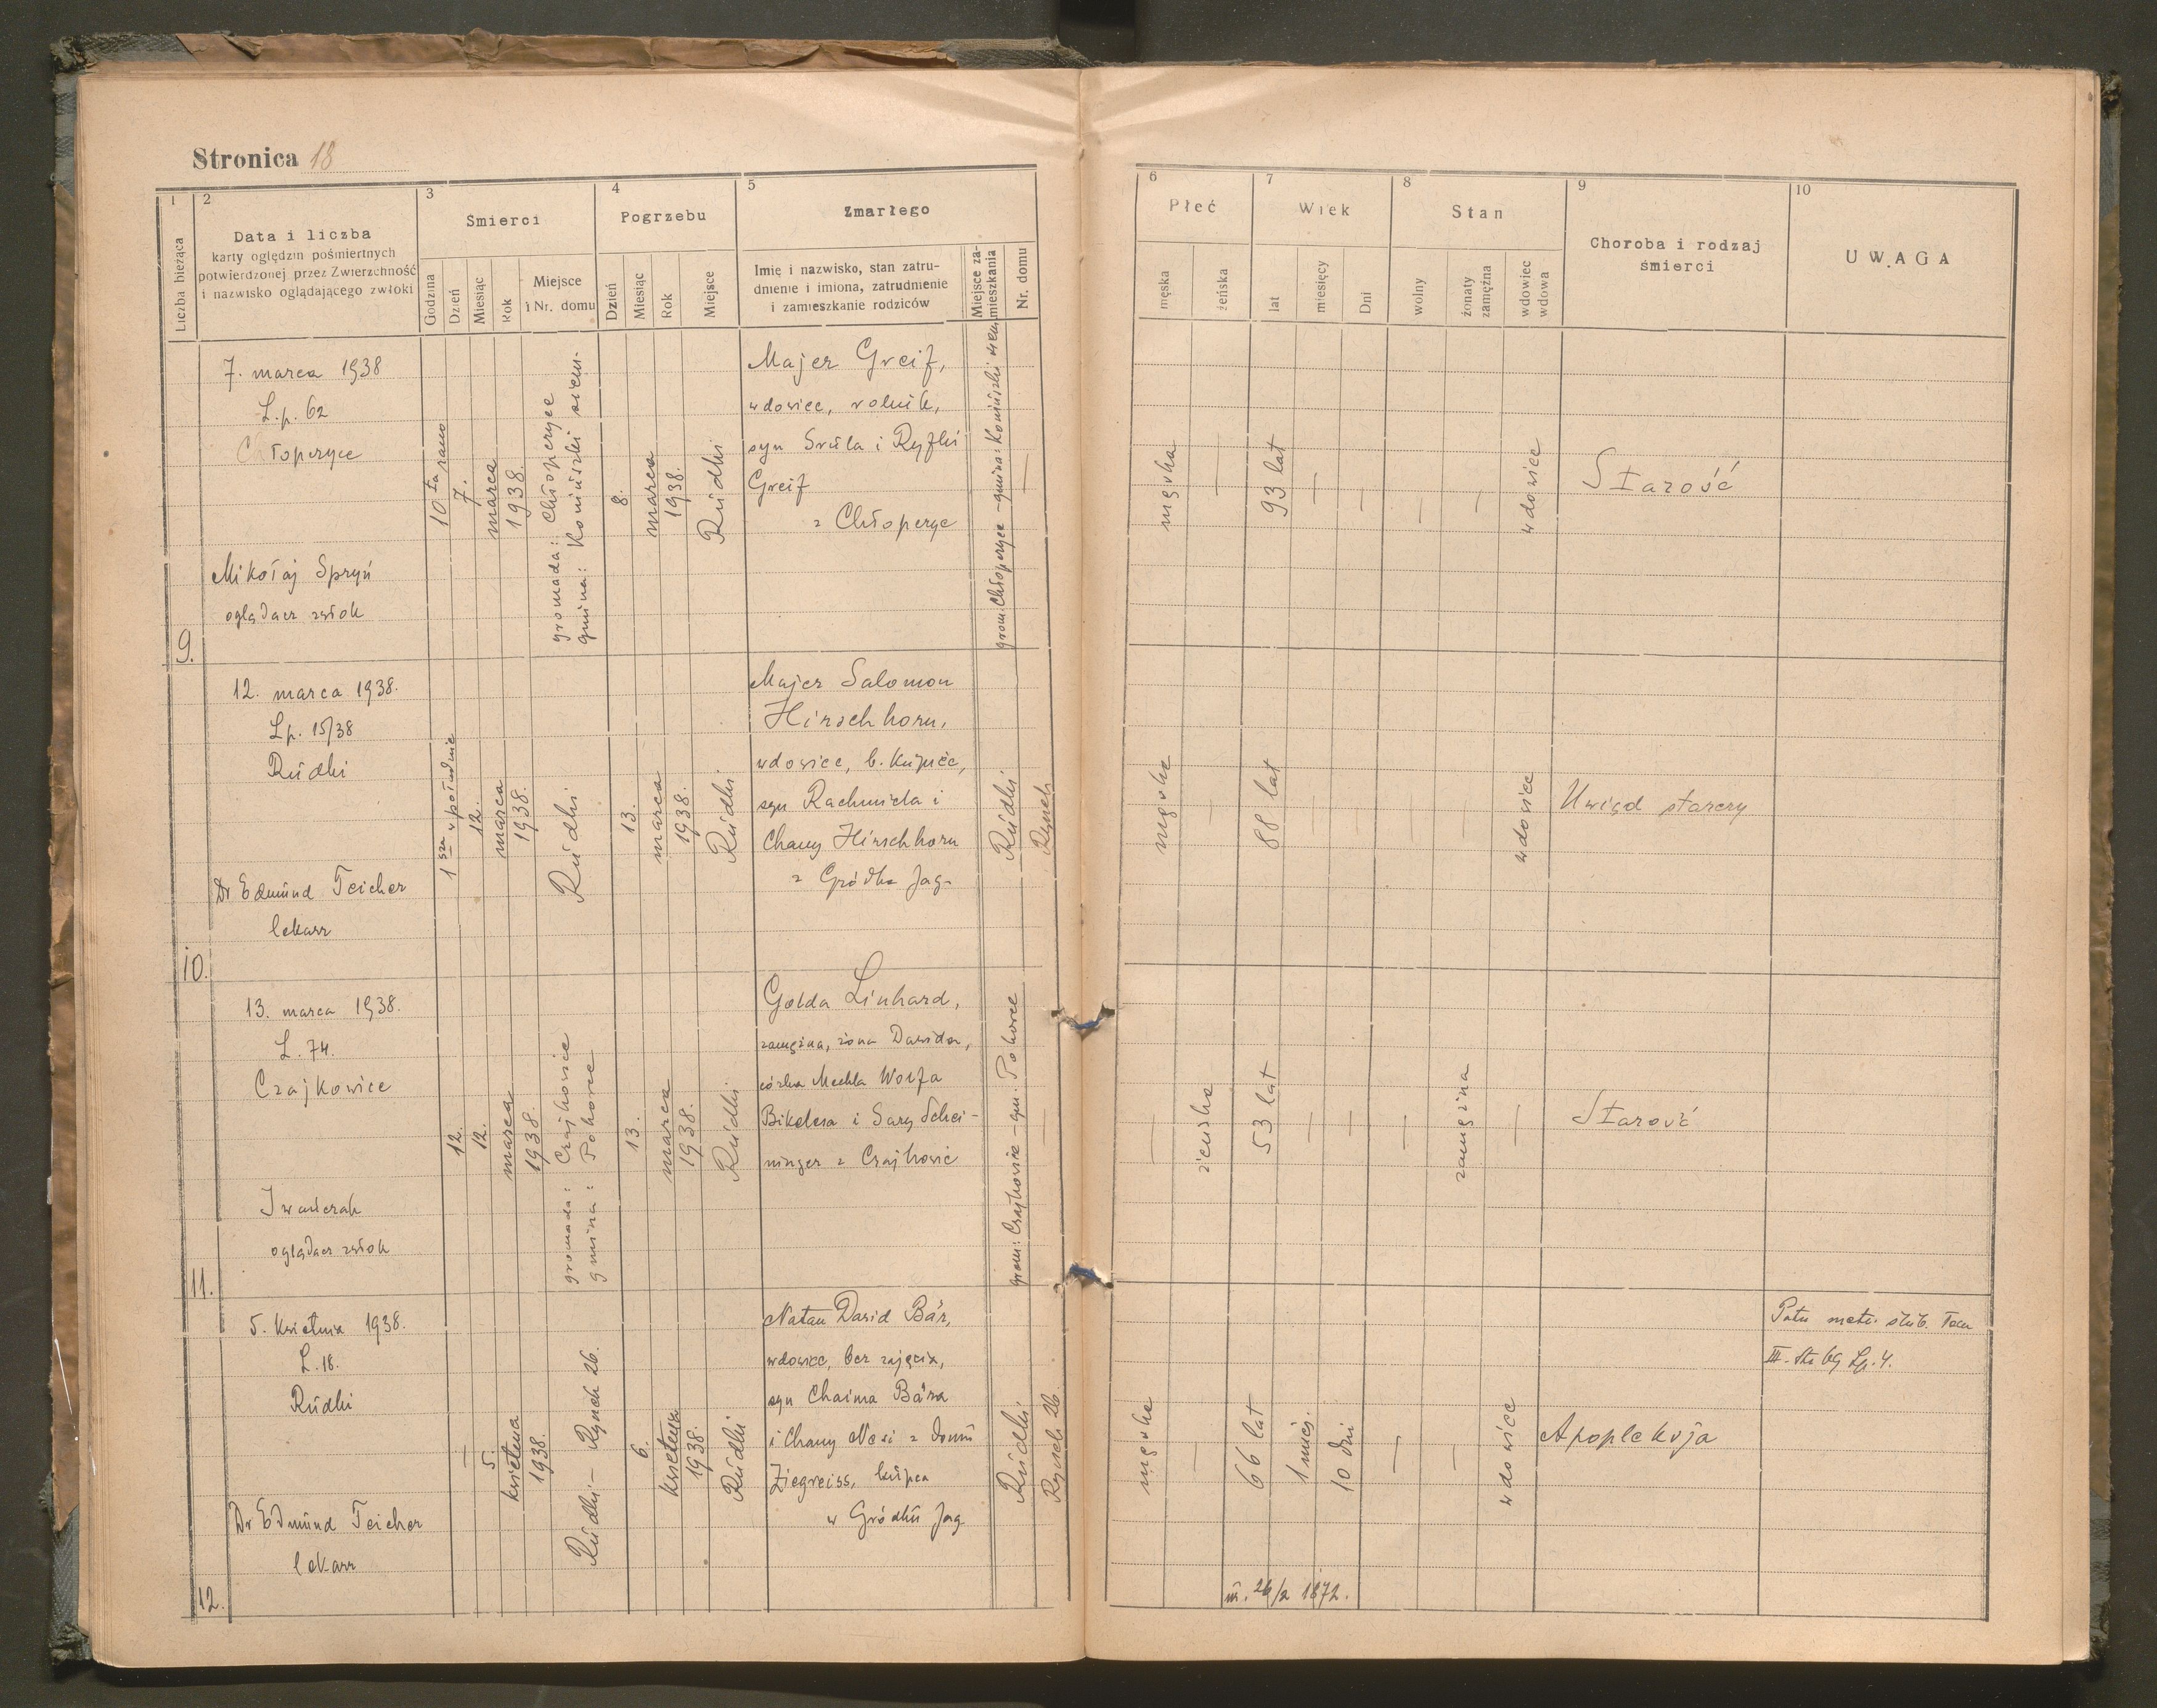 Stronica 18
1
2
3
4
5
6
7
8
9
10
Liczba bieżąca
Data i liczba
karty oględzin pośmiertnych
potwierdzonej przez Zwierzchność
i nazwisko oglądającego zwłoki
Smierci
Godzina
Dzień
Miesiąc
Rok
Miejsce
i Nr. domu
Pogrzebu
Dzień
Miesiąc
Rok
Miejsce
Zmarłego
Imię i nazwisko, stan zatru-
dnienie i imiona, zatrudnienie
i zamieszkanie rodziców
Miejsce za-
mieszkania
Nr. domu
Płeć
męska
żeńska
Wiek
lat
miesięcy
Dni
Stan
wolny
żonaty
zamężna
wdowiec
wdowa
Choroba i rodzaj
śmierci
UWAGA
9.
7. marca 1938
L.p. 62
Chłopczyce
Mikołaj Spryń
oglądacz zwłok
10ta rano
7.
marca
1938.
gromada: Chłopczyce
gmina: Koniuszki siem-
8.
marca
1938.
Rudki
Majer Greif,
wdowiec, rolnik,
syn Srula i Ryfki
Greif
z Chłopczyc
grom: Chłopczyce - gmina: Koniuszki siem.
—
męska
—
93 lat
—
—
—
—
wdowiec
Starość
10.
12. marca 1938.
Lp. 15/38
Rudki
Dr Edmund Teicher
lekarz
1sza w południe
12.
marca
1938.
Rudki
13.
marca
1938.
Rudki
Majer Salomon
Hirschhorn,
wdowiec, b. kupiec,
syn Rachmiela i
Chany Hirschhorn
z Gródka Jag.
Rudki
Rynek
męska
—
88 lat
—
—
—
—
wdowiec
Uwiąd starczy
11.
13. marca 1938.
L. 74.
Czajkowice
Iwańczak
oglądacz zwłok
12.
12.
marca
1938.
gromada: Czajkowice
gmina: Pohorce
13.
marca
1938.
Rudki
Golda Linhard,
zamężna, żona Dawida,
córka Mechla Wolfa
Bikelesa i Sary Schei-
ninger z Czajkowic
grom: Czajkowice - gm. Pohorce
—
—
żeńska
53 lat
—
—
—
zamężna
—
Starość
12.
5. kwietnia 1938.
L. 18.
Rudki
Dr Edmund Teicher
lekarz
—
5.
kwietnia
1938.
Rudki - Rynek 26.
6.
kwietnia
1938.
Rudki
Natan Dawid Bär,
wdowiec, bez zajęcia,
syn Chaima Bära
i Chany Nesi z domu
Ziegreiss, kupca
w Gródku Jag.
Rudki
Rynek 26.
męska
—
66 lat
1 mies.
10 dni
—
—
wdowiec
Apopleksja
ur. 26/2 1872.
metr. ślub. Tom
III. str 69 Lp. 4.